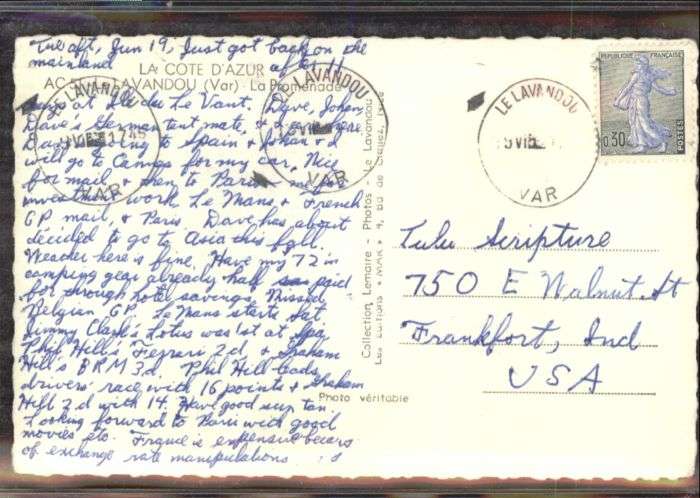 Tue aft, Jun 19, Just got back on the
mainland after 11
LA COTE D'AZUR
AC LAVANDOU (Var) La Promenade
days at Ile du Le Vant, Dave, Johan,
Dave's German tent mate, & I are here
Dave is going to Spain & Johan & I
will go to Cannes for my car, Nice
for mail, & then to Paris
investment work, Le Mans & French
GP mail, & Paris. Dave has about
decided to go to Asia this fall.
Weather here is fine. Have my 72 in
camping gear already half paid
for through hotel savings. Missed
Belgian GP. Le Mans starts Sat
Jimmy Clark's Lotus was 1st at Spa,
Phil Hill's Ferrari 2d & Graham
Hill's BRM 3d. Phil Hill leads
drivers' race with 16 points & Graham
Hill 2d with 14. Have good sun tan.
Looking forward to Paris with good
movies etc. France is expensive because
of exchange rate manipulations
LE LAVANDOU
VAR
LE LAVANDOU
VAR
LE LAVANDOU
VAR
REPUBLIQUE FRANÇAISE
0,30
POSTES
Collection Lemaire - Photos - Le Lavandou
Les Editions "MAR"
Photo véritable
Lulu Scripture
750 E Walnut St
Frankfort, Ind
USA